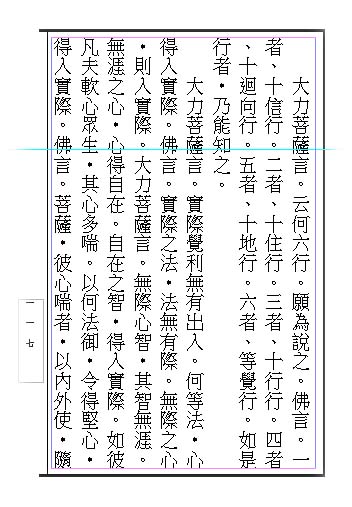 大力菩薩言。云何六行。願為說之。佛言。一
者、十信行。二者、十住行。三者、十行行。四者
、十迴向行。五者、十地行。六者、等覺行。如是
行者・乃能知之。
大力菩薩言。實際覺利無有出入。何等法・心
得入實際。佛言。實際之法・法無有際。無際之心
・則入實際。大力菩薩言。無際心智・其智無涯。
無涯之心・心得自在。自在之智・得入實際。如彼
凡夫軟心眾生・其心多喘。以何法御・令得堅心・
得入實際。佛言。菩薩・彼心喘者・以內外使・隨
一一七